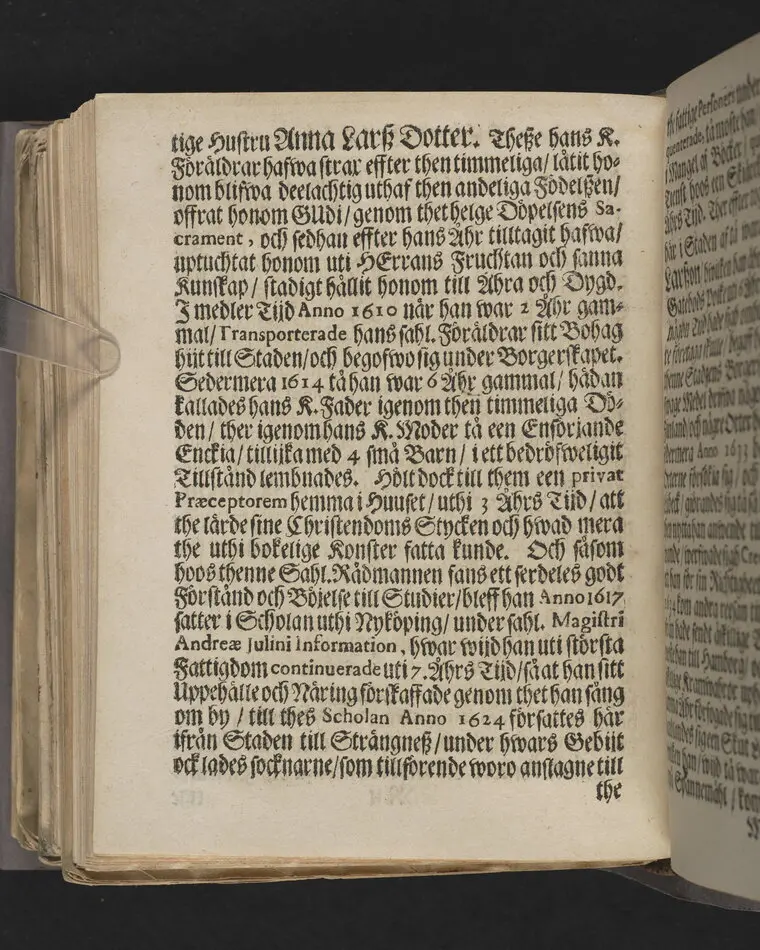 tige Hustru Anna Larß Dotter. Theße hans K.
Föräldrar hafwa strax effter then timmeliga/ låtit ho-
nom blifwa deelachtig uthaf then andeliga Födelßen/
offrat honom GUdi/ genom thet helge Döpelsens Sa-
crament, och sedhan effter hans Åhr tilltagit hafwa/
uptuchtat honom uti HErrans Fruchtan och sanna
Kunskap/ stadigt hållit honom till Ähra och Dygd.
I medler Tijd Anno 1610 når han war 2 Åhr gam-
mal/ Transporterade hans sahl. Föräldrar sitt Bohag
hijt till Staden/ och begofwo sig under Borgerskapet.
Sedermera 1614 tå han war 6 Åhr gammal/ hådan
kallades hans K. Fader igenom then timmeliga Dö-
den/ ther igenom hans K. Moder tå een Ensörjande
Enckia/ tillijka med 4 små Barn/ i ett bedröfweligit
Tillstånd lembnades. Hölt dock till them een privat
Præceptorem hemma i Huuset/ uthi 3 Åhrs Tijd/ att
the lärde sine Christendoms Stycken och hwad mera
the uthi bokelige Konster fatta kunde. Och såsom
hoos thenne Sahl. Rådmannen fans ett serdeles godt
Förstånd och Böjelse till Studier/ bleff han Anno 1617
satter i Scholan uthi Nyköping/ under sahl. Magistri
Andreæ Julini Information, hwar wijd han uti största
Fattigdom continuerade uti 7. Åhrs Tijd/ så at han sitt
Uppehälle och Näring förskaffade genom thet han sång
om by/ till thes Scholan Anno 1624 försattes här
ifrån Staden till Strängneß/ under hwars Gebijt
ock lades socknarne/ som tillförende woro anslagne till
the